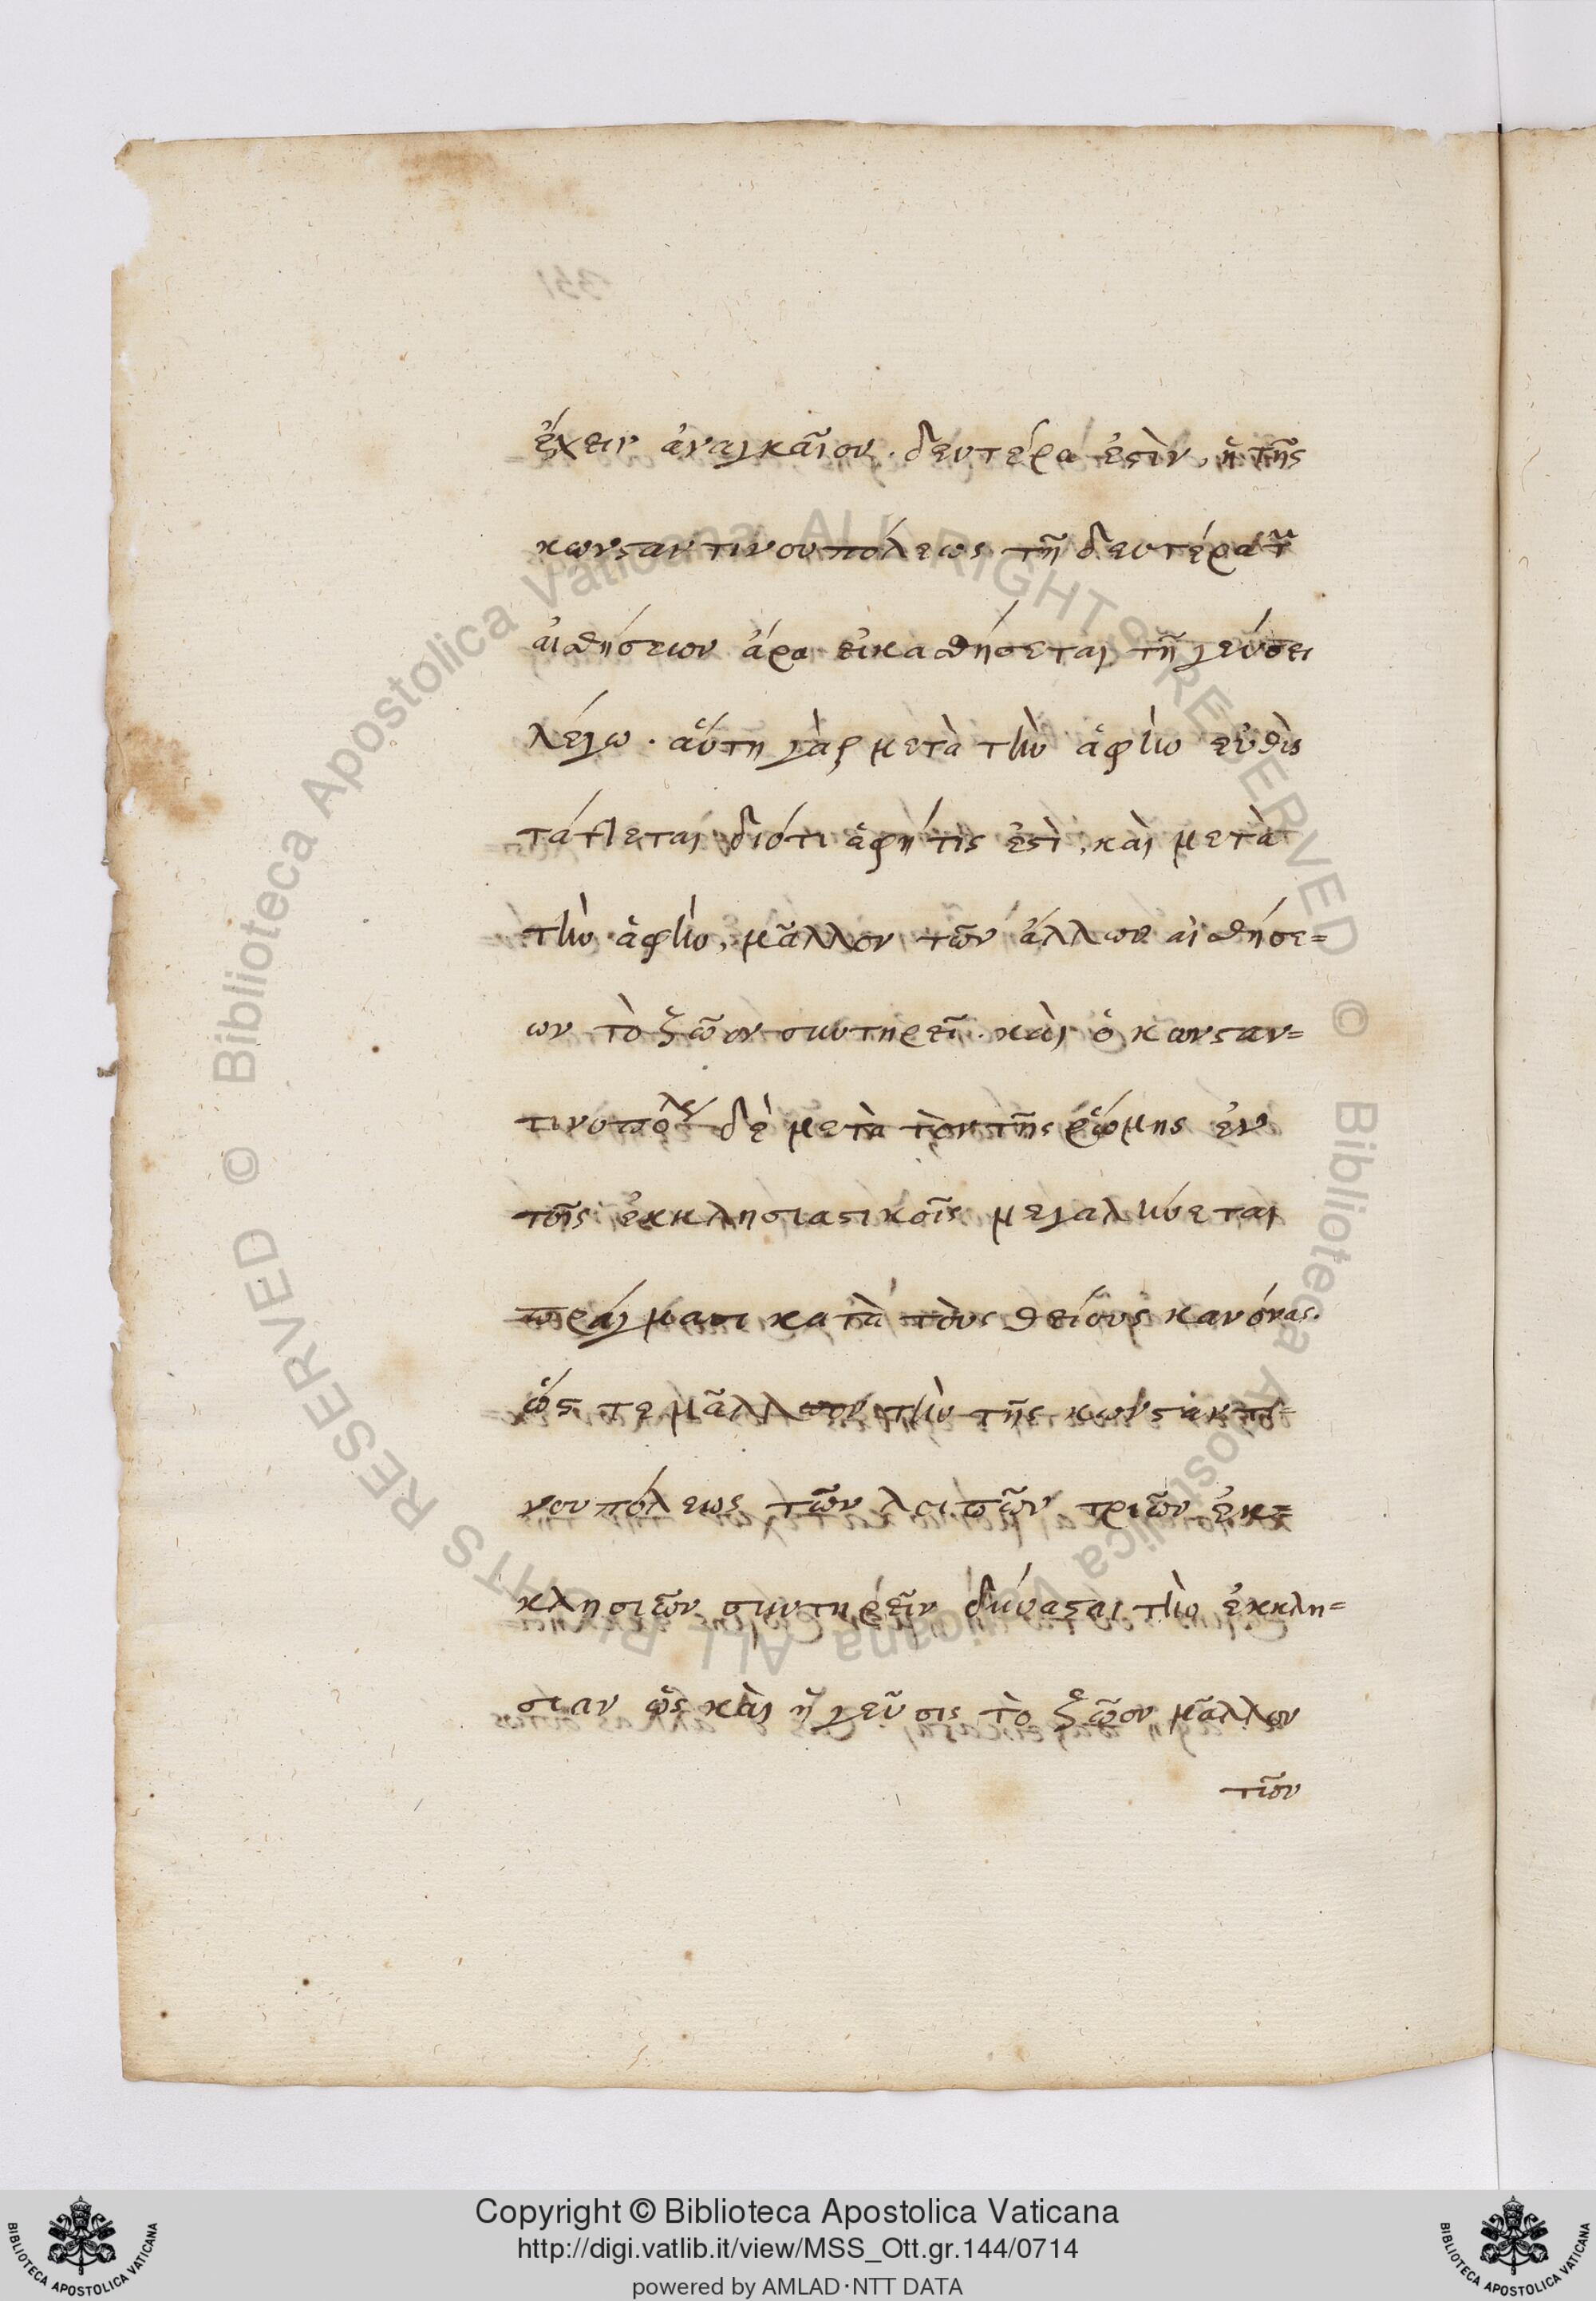 ἔχειν ἀναγκαῖον. δευτέρα ἐστὶν, ἡ τῆς
κωνσταντινουπόλεως τῇ δευτέρα τῶν
αἰσθήσεων ἄρα εἰκασθήσεται τῇ γεύσει
λέγω. αὕτη γὰρ μετὰ τὴν ἁφὴν εὐθὺς
τάττεται διότι ἁφή τίς ἐστὶ, καὶ μετὰ
τὴν ἁφὴν, μᾶλλον τῶν ἄλλων αἰσθήσε=
ων τὸ ζῶον συντηρεῖ. καὶ ὁ κωνσταν=
τινουπόλεως δὲ μετὰ τὸν τῆς ῥώμης ἐν
τοῖς ἐκκλησιαστικοῖς μεγαλύνεται
πράγμασι κατὰ τοὺς θείους κανόνας.
ὥστε μᾶλλον τὴν τῆς κωνσταντι=
νουπόλεως τῶν λοιπῶν τριῶν ἐκ=
κλησιῶν συντηρεῖν δύνασαι τὴν ἐκκλη=
σιαν ὡς καὶ ἡ γεῦσις τὸ ζῶον μᾶλλον
τῶν
Copyright © Biblioteca Apostolica Vaticana
http://digi.vatlib.it/view/MSS_Ott.gr.144/0714
powered by AMLAD·NTT DATA
© Biblioteca Apostolica Vaticana ALL RIGHTS RESERVED
© Biblioteca Apostolica Vaticana ALL RIGHTS RESERVED
BIBLIOTECA APOSTOLICA VATICANA
BIBLIOTECA APOSTOLICA VATICANA